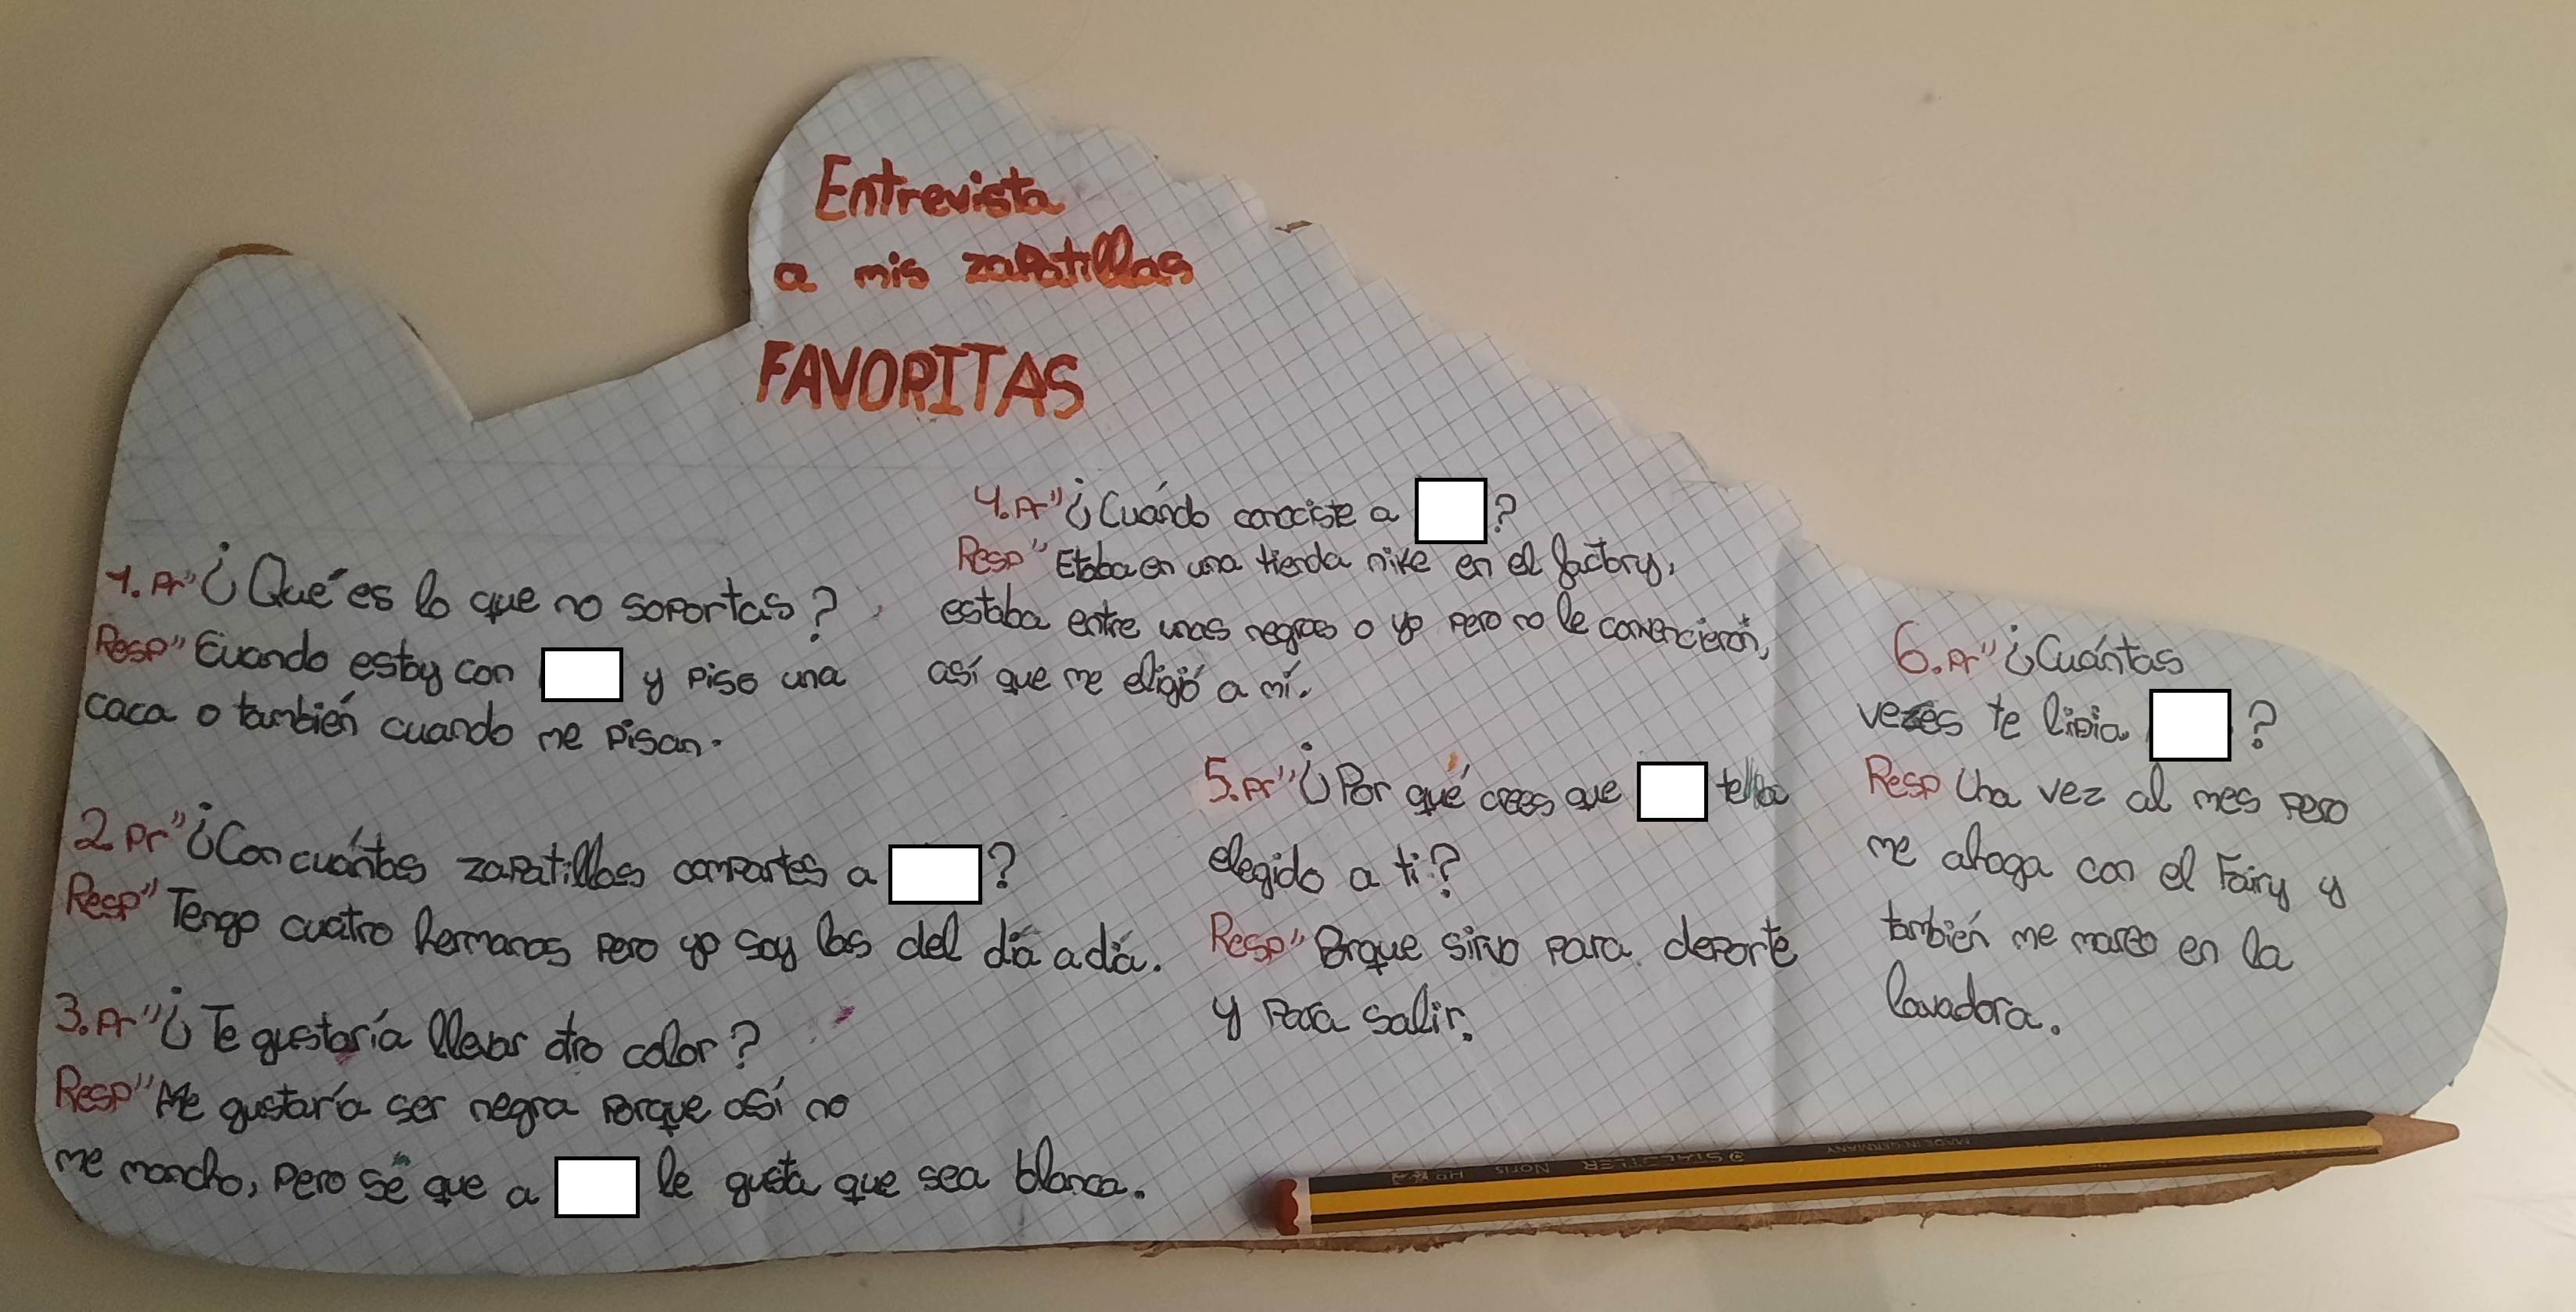 Entrevista
a mis zapatillas
FAVORITAS
1. Pr" ¿Qué es lo que no soportas?
Resp" Cuando estoy con y piso una
caca o también cuando me pisan.
2 Pr" ¿Con cuántas zapatillas compartes a ?
Resp" Tengo cuatro hermanas pero yo soy las del día a día.
3. Pr" ¿Te gustaría llevar otro color?
Resp" Me gustaría ser negra porque así no
me mancho, pero sé que a le gusta que sea blanca.
4. Pr" ¿Cuándo conociste a ?
Resp" Etaba en una tienda nike en el factory,
estaba entre unas negras o yo pero no le convencierón,
así que me eligió a mí.
5. Pr" ¿Por qué crees que te ha
elegido a ti?
Resp" Porque sirvo para deporte
y para salir.
6. Pr" ¿Cuántas
vezes te lipia ?
Resp Una vez al mes pero
me ahoga con el Fairy y
también me mareo en la
lavadora.
STAEDTLER Noris HB
MADE IN GERMANY